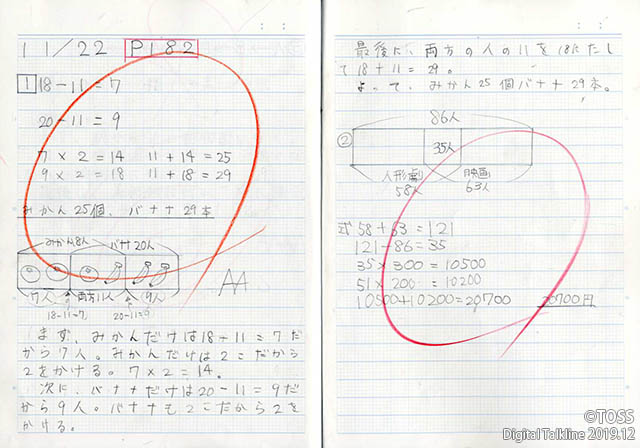 11/22 P182
1 18-11=7
20-11=9
7×2=14 11+14=25
9×2=18 11+18=29
みかん25個、バナナ29本
みかん18人 バナナ20人
7人 両方11人 9人
18-11=7 20-11=9
AA
まず、みかんだけは18+11=7だ
から7人。みかんだけは2こだから
2をかける。7×2=14。
次に、バナナだけは20-11=9だ
から9人。バナナも2こだから2を
かける。
最後に、両方の人の11を18にたし
て18+11=29。
よって、みかん25個バナナ29本。
86人
② 35人
人形劇 映画
58人 63人
式 58+63=121
121-86=35
35×300=10500
51×200=10200
10500+10200=20700 20700円
©TOSS
Digital Talkline 2019.12